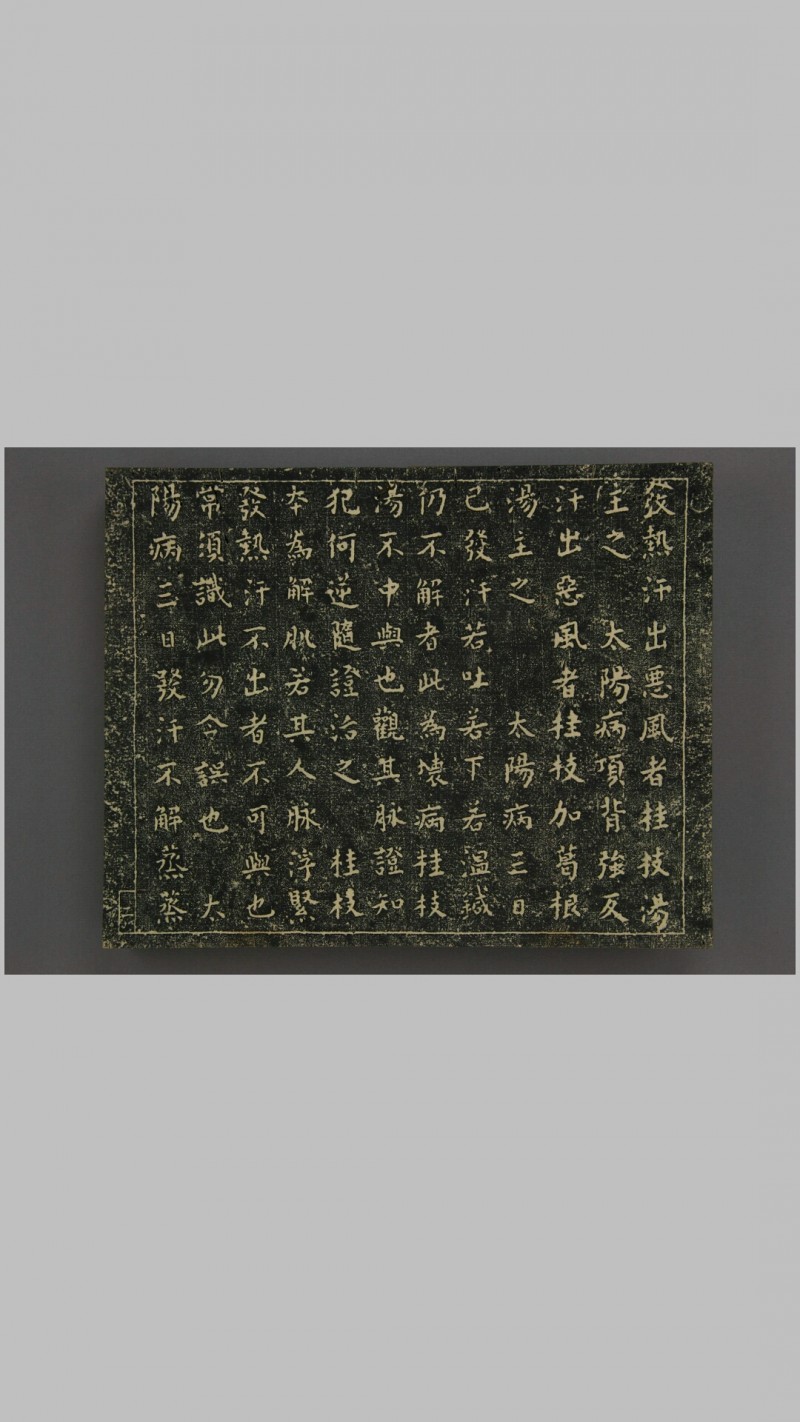 發熱汗出惡風者桂枝湯
主之　太陽病項背強反
汗出惡風者桂枝加葛根
湯主之　　太陽病三日
已發汗若吐若下若溫鍼
仍不解者此為壞病桂枝
湯不中與也觀其脉證知
犯何逆隨證治之　桂枝
本為解肌若其人脉浮緊
發熱汗不出者不可與也
常須識此勿令誤也　太
陽病三日發汗不解蒸蒸